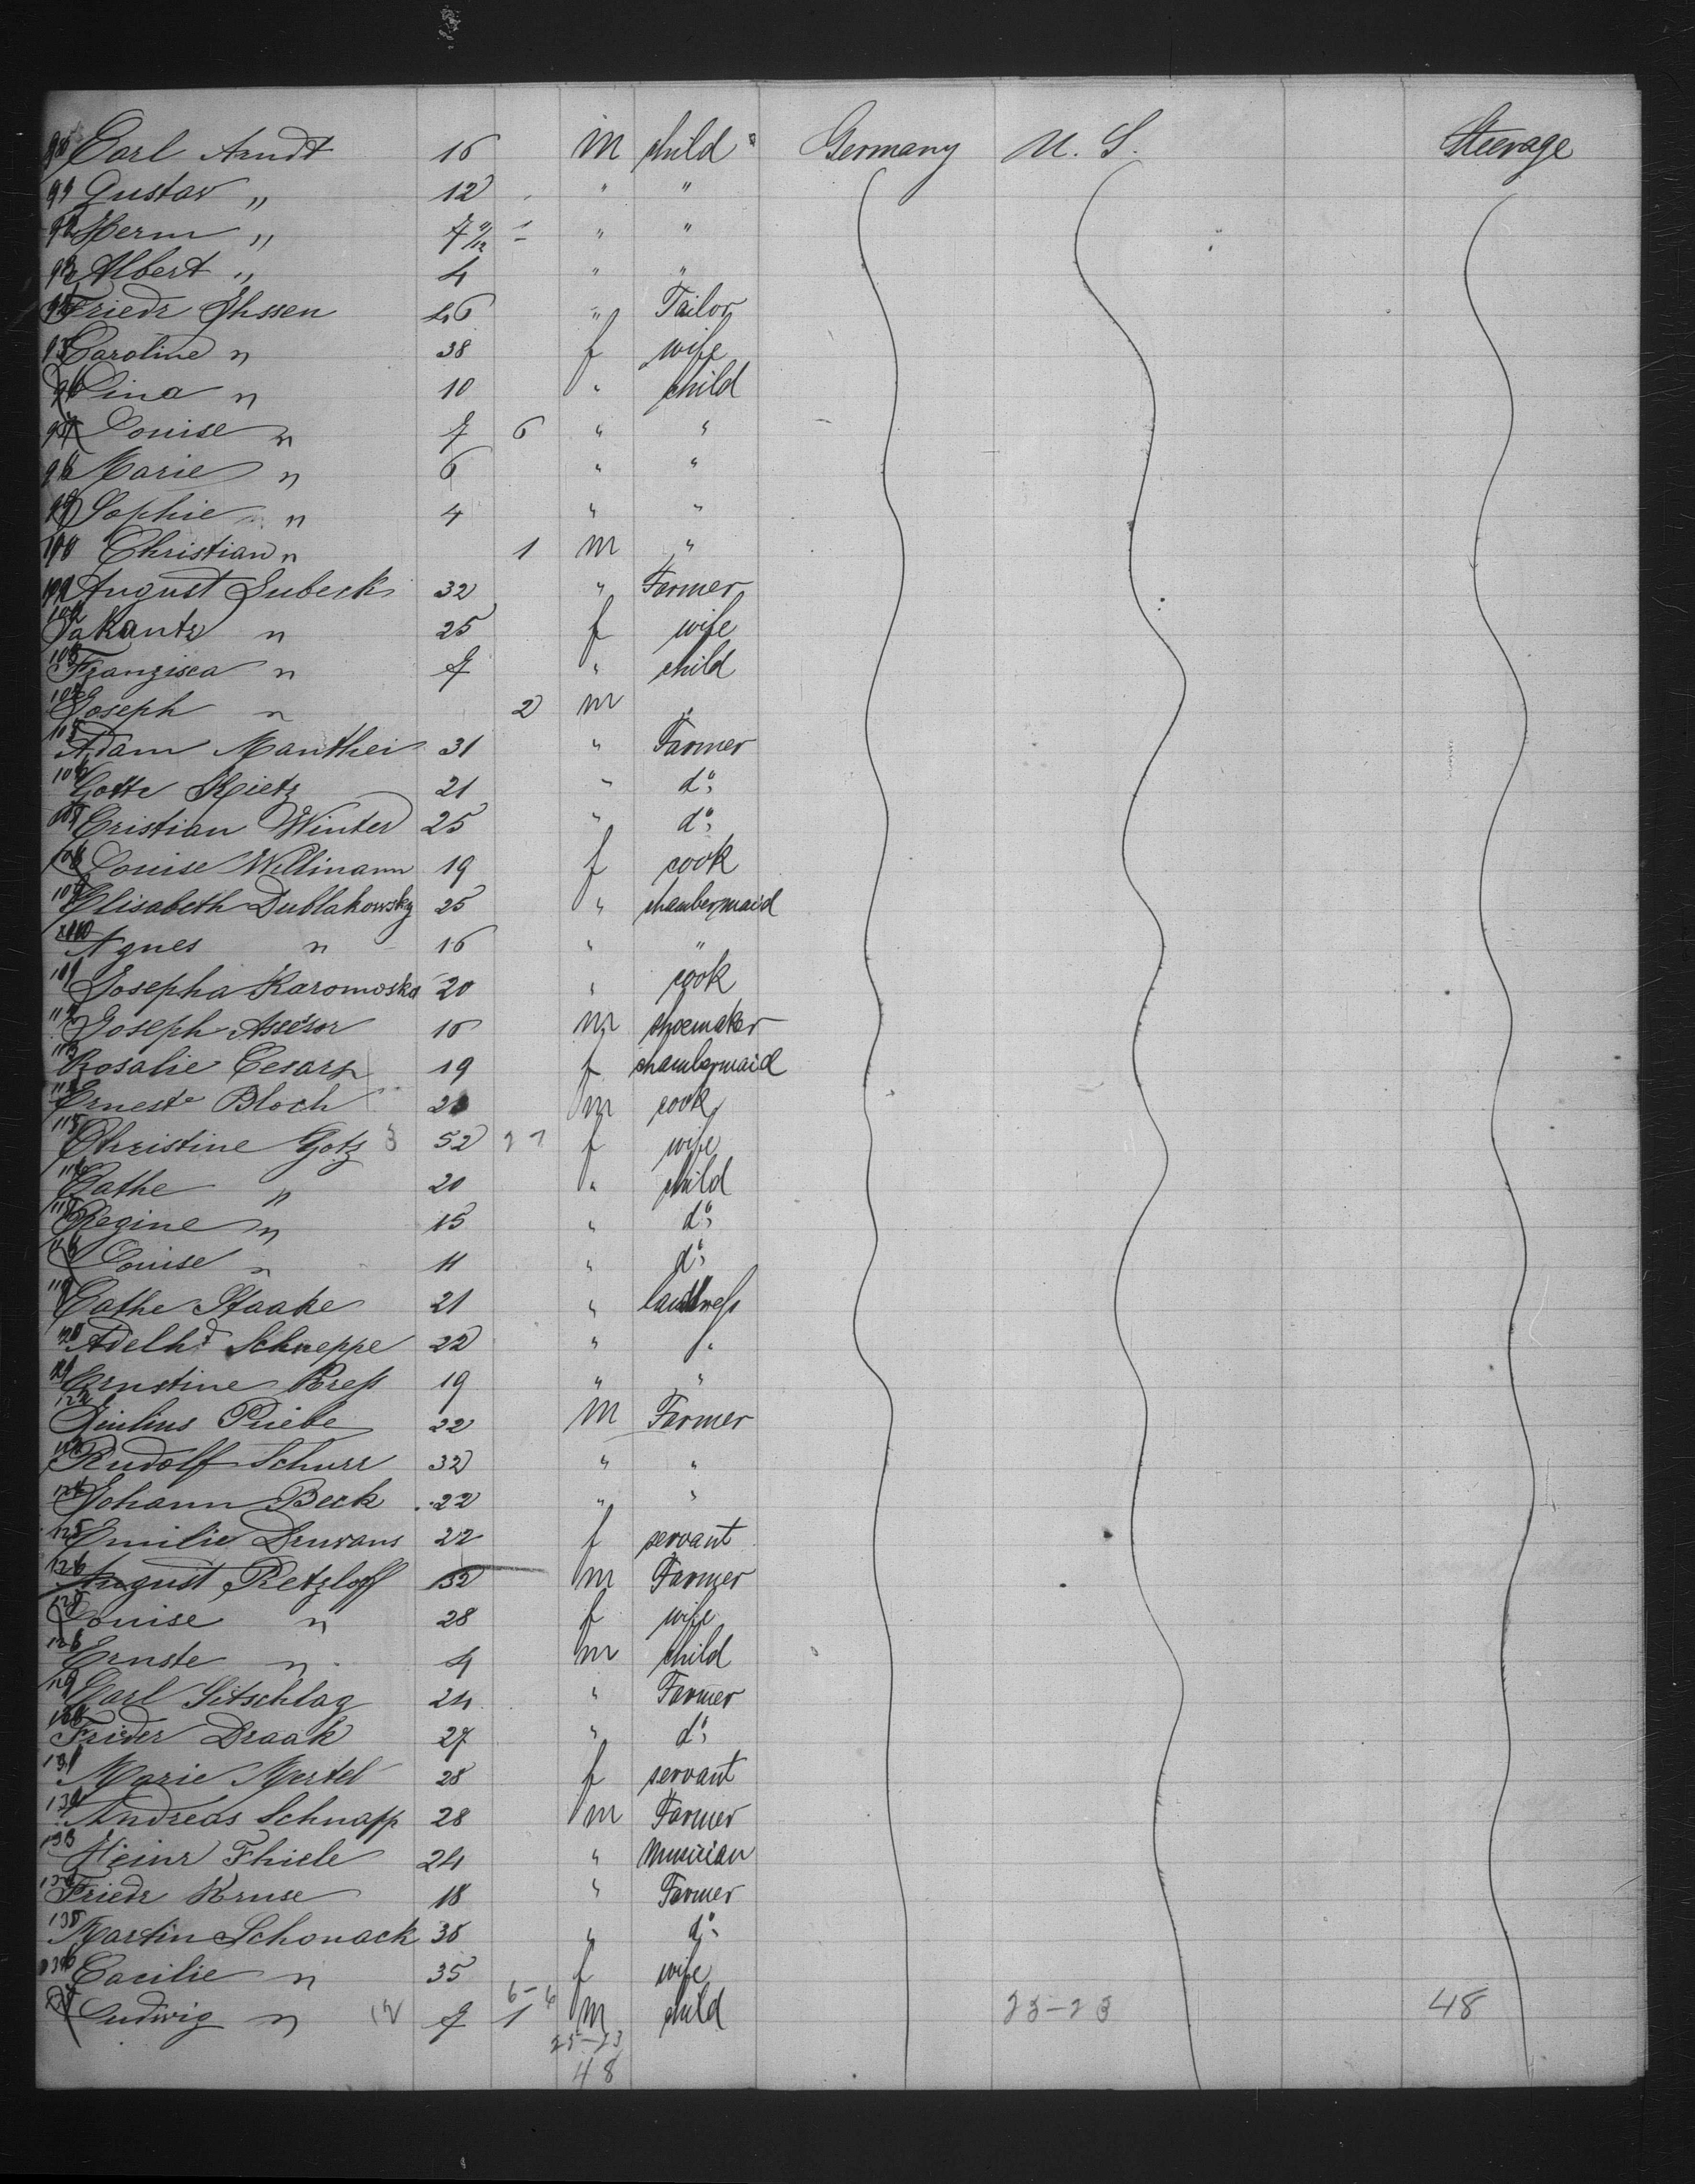 90 Carl Arndt 16 m child Germany U. S. Steerage
91 Gustav " 12 " "
92 Herm " 7 9/12 " "
93 Albert " 4 " "
94 Friedr Ihssen 46 " Tailor
95 Caroline " 38 f wife
96 Lina " 10 " child
97 Louise " 7 6 " "
98 Marie " 6 " "
99 Sophie " 4 " "
100 Christian " 1 m "
101 August Lubeck 32 " Farmer
102 " 25 f wife
103 Franzisca " 7 " child
104 Joseph " 2 m "
105 Adam Manthei 31 " Farmer
106 Gotte Rietz 21 " do
107 Cristian Winter 25 " do
108 Louise Willmann 19 f cook
109 Elisabeth Dublakowsky 25 " chambermaid
110 Agnes " 16 " "
111 Josepha Karomoska 20 " cook
112 Joseph Assesor 16 m shoemaker
113 Rosalie Cesarz 19 f chambermaid
114 Ernest Bloch m cook
115 Christine Gotz 52 f wife
116 Cathe " 20 " child
117 Regine " 15 " do
118 Louise " 11 " do
119 Cathe Staake 21 "
120 Adelhd Schneppe 22 " "
121 Ernstine Kress 19 " "
122 Julius Priebe 22 m Farmer
123 Rudolf Schurr 32 " "
124 Johann Beck 22 " "
125 Emilie 22 f servant
126 August Retzloff 32 m Farmer
127 Louise " 28 f wife
128 Ernste " 4 m child
129 Carl Sitschlag 24 " Farmer
130 Frider Draak 27 " do
131 Marie Mertel 28 f servant
132 Andreas Schnapp 28 m Farmer
133 Heinr Thiele 24 " musician
134 Friedr Kruse 18 " Farmer
135 Martin Schonack 38 " do
136 Cacilie " 35 f wife
137 Ludwig " 7 1 m child 23-23 48
25-23
48